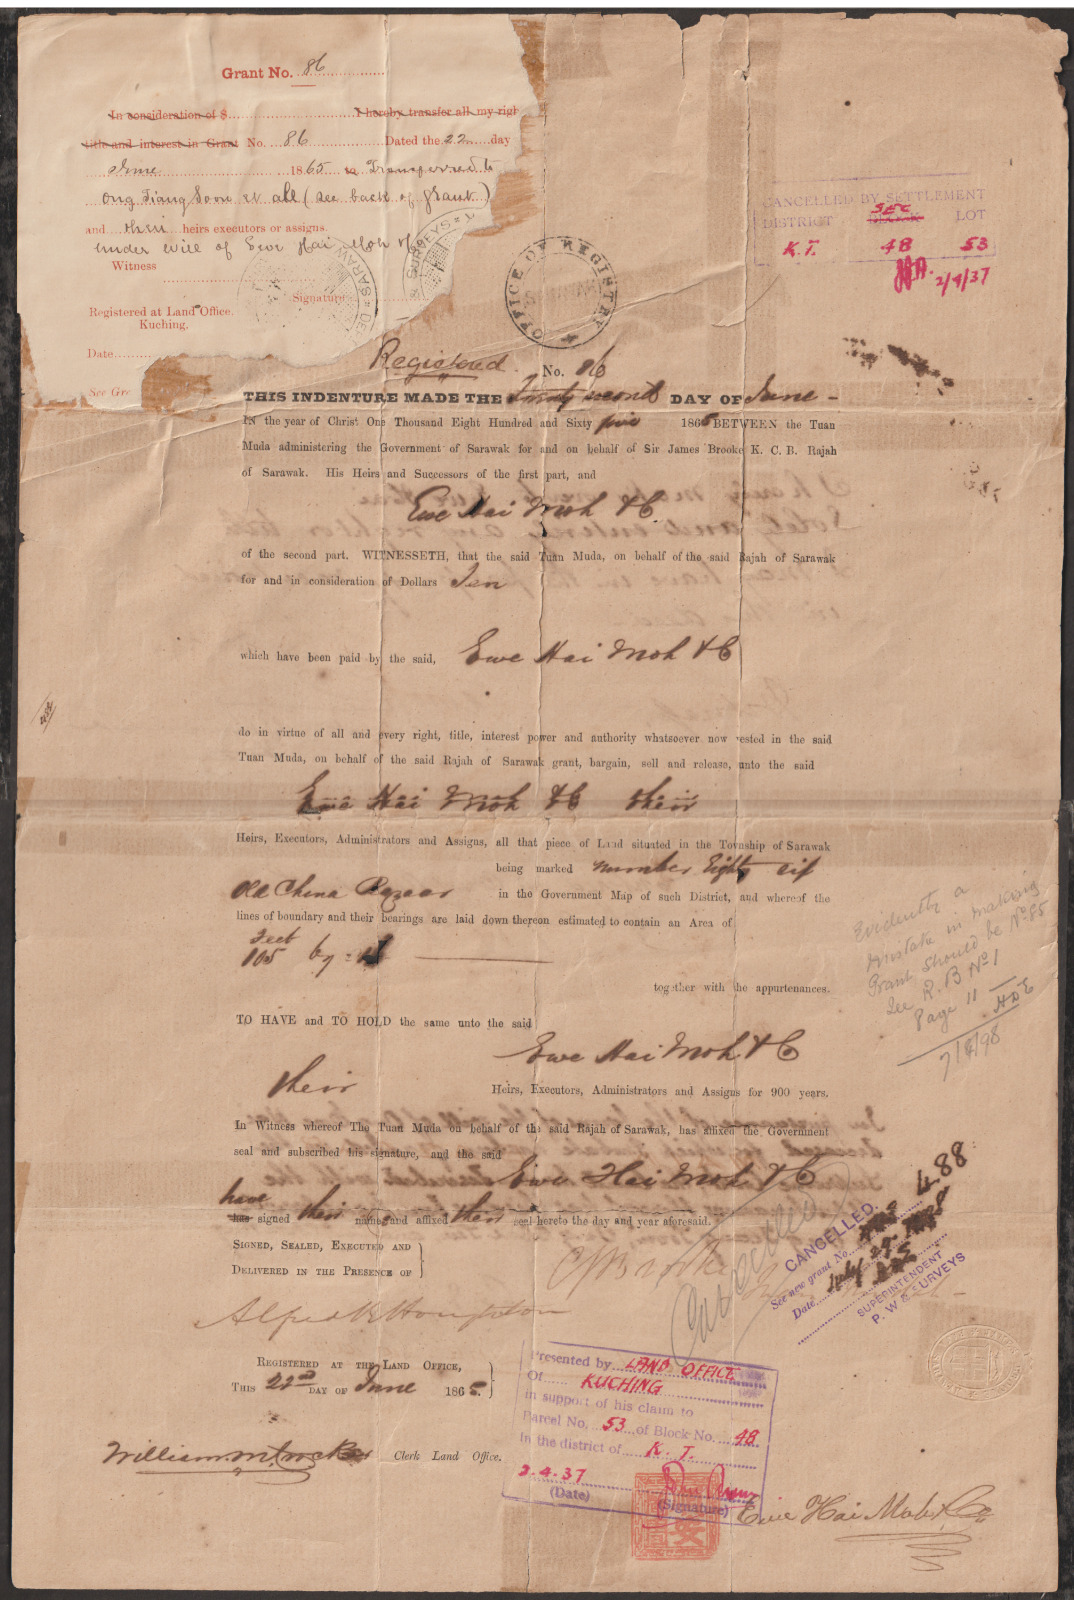 Grant No. 86
In consideration of $ I hereby transfer all my righ
title and interest in Grant No. 86 Dated the 22 day
June 1865 to Transferred to
Ong Tiang Soon et all (see back of grant)
and their heirs executors or assigns.
under will of Ewe Hai Moh
Witness
Signature
Registered at Land Office.
Kuching.
Date
See Gr
& SURVEYS
SARAW
OFFICE OF REGISTRY
CANCELLED BY SETTLEMENT
SEC
DISTRICT BLOCK LOT
K.T. 48 53
2/4/37
Registered No. 86
THIS INDENTURE MADE THE Twenty second DAY OF June
IN the year of Christ One Thousand Eight Hundred and Sixty five 1865 BETWEEN the Tuan
Muda administering the Government of Sarawak for and on behalf of Sir James Brooke K. C. B. Rajah
of Sarawak. His Heirs and Successors of the first part, and
Ewe Hai Moh & C
of the second part. WITNESSETH, that the said Tuan Muda, on behalf of the said Rajah of Sarawak
for and in consideration of Dollars Ten
which have been paid by the said, Ewe Hai Moh & C
do in virtue of all and every right, title, interest power and authority whatsoever now vested in the said
Tuan Muda, on behalf of the said Rajah of Sarawak grant, bargain, sell and release, unto the said
Ewe Hai Moh & C their
Heirs, Executors, Administrators and Assigns, all that piece of Land situated in the Township of Sarawak
being marked number Eighty six
Old China Bazaar in the Government Map of such District, and whereof the
lines of boundary and their bearings are laid down thereon estimated to contain an Area of
feet
105 by
together with the appurtenances.
TO HAVE and TO HOLD the same unto the said
Ewe Hai Moh & C
their
Heirs, Executors, Administrators and Assigns for 900 years.
In Witness whereof The Tuan Muda on behalf of the said Rajah of Sarawak, has affixed the Government
seal and subscribed his signature, and the said
Ewe Hai Moh & C
have
has signed their name and affixed their seal hereto the day and year aforesaid.
Evidently a
mistake in making
Grant should be No 85
See R. B No 1
Page 11
HDE
7/4/98
SIGNED, SEALED, EXECUTED AND
DELIVERED IN THE PRESENCE OF
C Brooke
Cancelled
Alfred R Houghton
488
CANCELLED.
See new grant No.
Date
SUPERINTENDENT
P. W. & SURVEYS
REGISTERED AT THE LAND OFFICE,
THIS 22nd DAY OF June 1865.
William M. Crocker Clerk Land Office.
Presented by LAND OFFICE
Of KUCHING
in support of his claim to
Parcel No. 53 of Block No. 48
in the district of K. T.
2.4.37
(Date) (Signature)
Ewe Hai Moh & Co